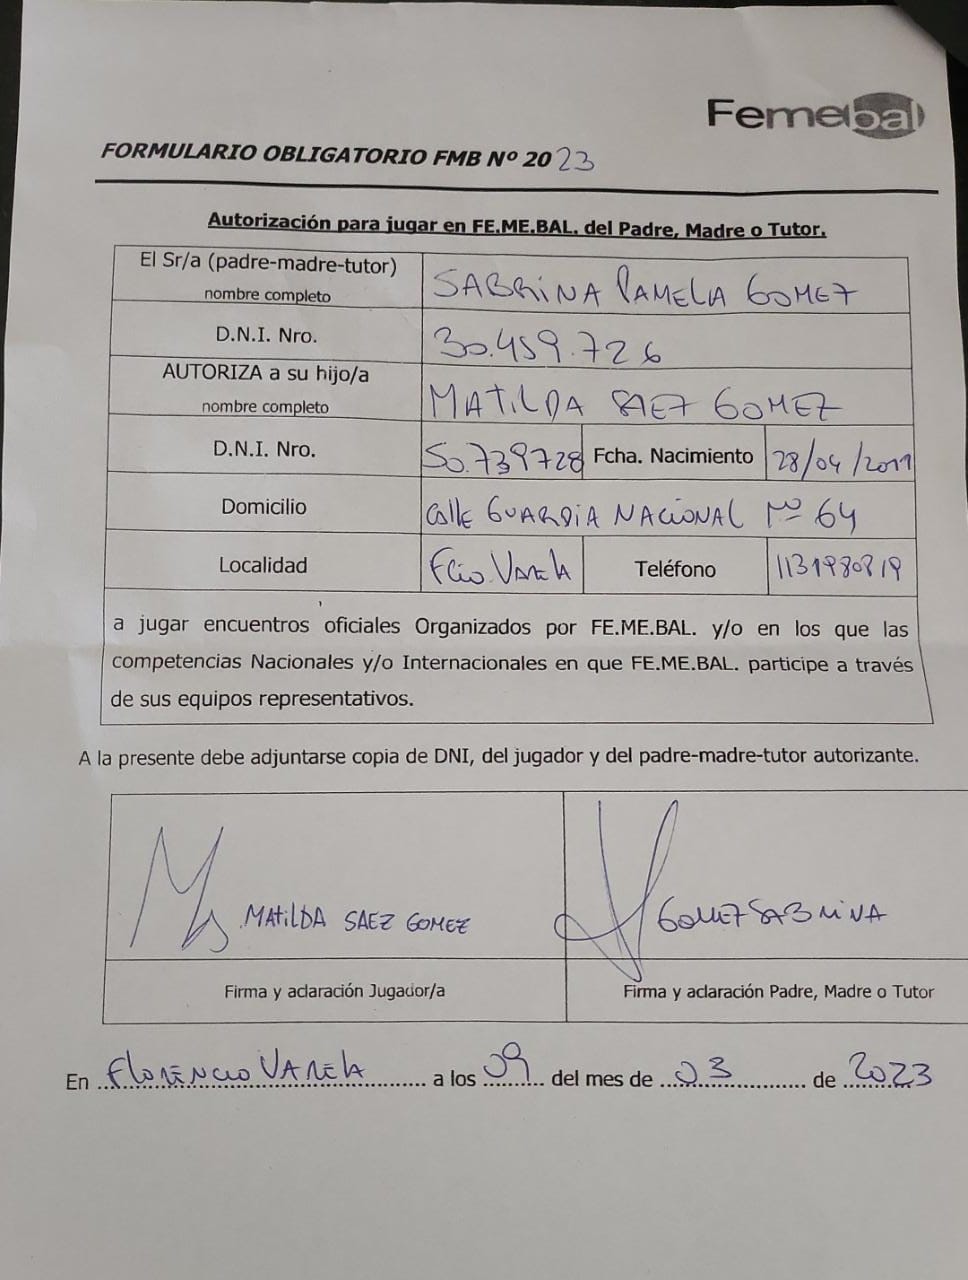 Femebal
FORMULARIO OBLIGATORIO FMB Nº 2023
Autorización para jugar en FE.ME.BAL. del Padre, Madre o Tutor.
El Sr/a (padre-madre-tutor) nombre completo SABRINA PAMELA GOMEZ
D.N.I. Nro. 30.459.726
AUTORIZA a su hijo/a nombre completo MATILDA SAEZ GOMEZ
D.N.I. Nro. 50.739728 Fcha. Nacimiento 28/04/2011
Domicilio CALLE GUARDIA NACIONAL Nº 64
Localidad FCIO. VARELA Teléfono 1131980819
a jugar encuentros oficiales Organizados por FE.ME.BAL. y/o en los que las
competencias Nacionales y/o Internacionales en que FE.ME.BAL. participe a través
de sus equipos representativos.
A la presente debe adjuntarse copia de DNI, del jugador y del padre-madre-tutor autorizante.
MATILDA SAEZ GOMEZ
GOMEZ SABRINA
Firma y aclaración Jugador/a
Firma y aclaración Padre, Madre o Tutor
En FLORENCIO VARELA a los 09 del mes de 03 de 2023